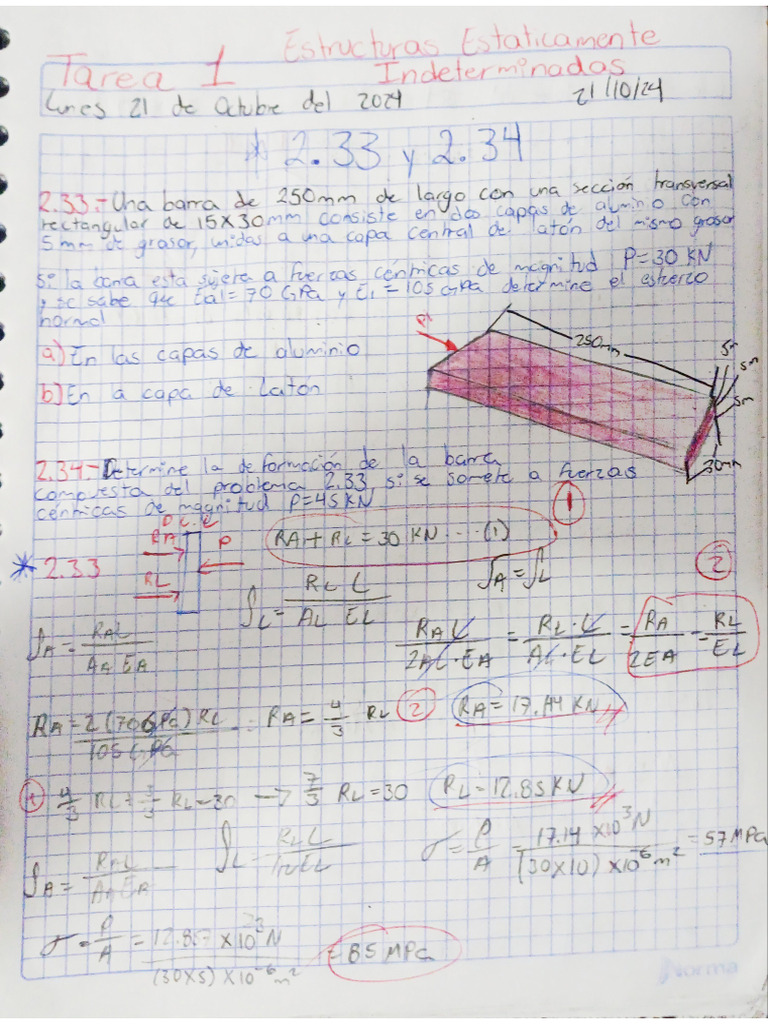 Estructuras Estaticamente
Tarea 1 Indeterminadas
Lunes 21 de Octubre del 2024 21/10/24
* 2.33 y 2.34
2.33.- Una barra de 250mm de largo con una sección transversal
rectangular de 15x30mm consiste en dos capas de aluminio con
5mm de grosor, unidas a una capa central de latón del mismo grosor
Si la barra esta sujera a fuerzas céntricas de magnitud P=30 KN
y se sabe que Eal=70 GPa y El=105 GPa determine el esfuerzo
normal
a) En las capas de aluminio
b) En a capa de Latón
P'
250mm
5m
5m
5m
30mm
2.34.- Determine la deformación de la barra
compuesta del problema 2.33 si se somete a fuerzas
céntricas de magnitud P=45 KN
D.C.L
* 2.33
RA
P
RL
RA+RL=30 KN ...(1)
1
δA=δL
2
δA= RAL / AAEA
δL= RL L / AL EL
RA L / 2AL·EA = RL·L / AL·EL = RA / 2EA = RL / EL
RA=2(70GPa)RL / 105GPa RA= 4/3 RL 2 RA=17.14 KN
1 4/3 RL + 3/3 RL=30 → 7/3 RL=30 RL=12.85KN
δA= RAL / AAEA
δL= RLL
σ= P/A = 17.14 x10³N / (30x10)x10⁻⁶m² = 57MPa
σ= P/A = 12.857 x10³N / (30x5)x10⁻⁶m² = 85MPa
Norma